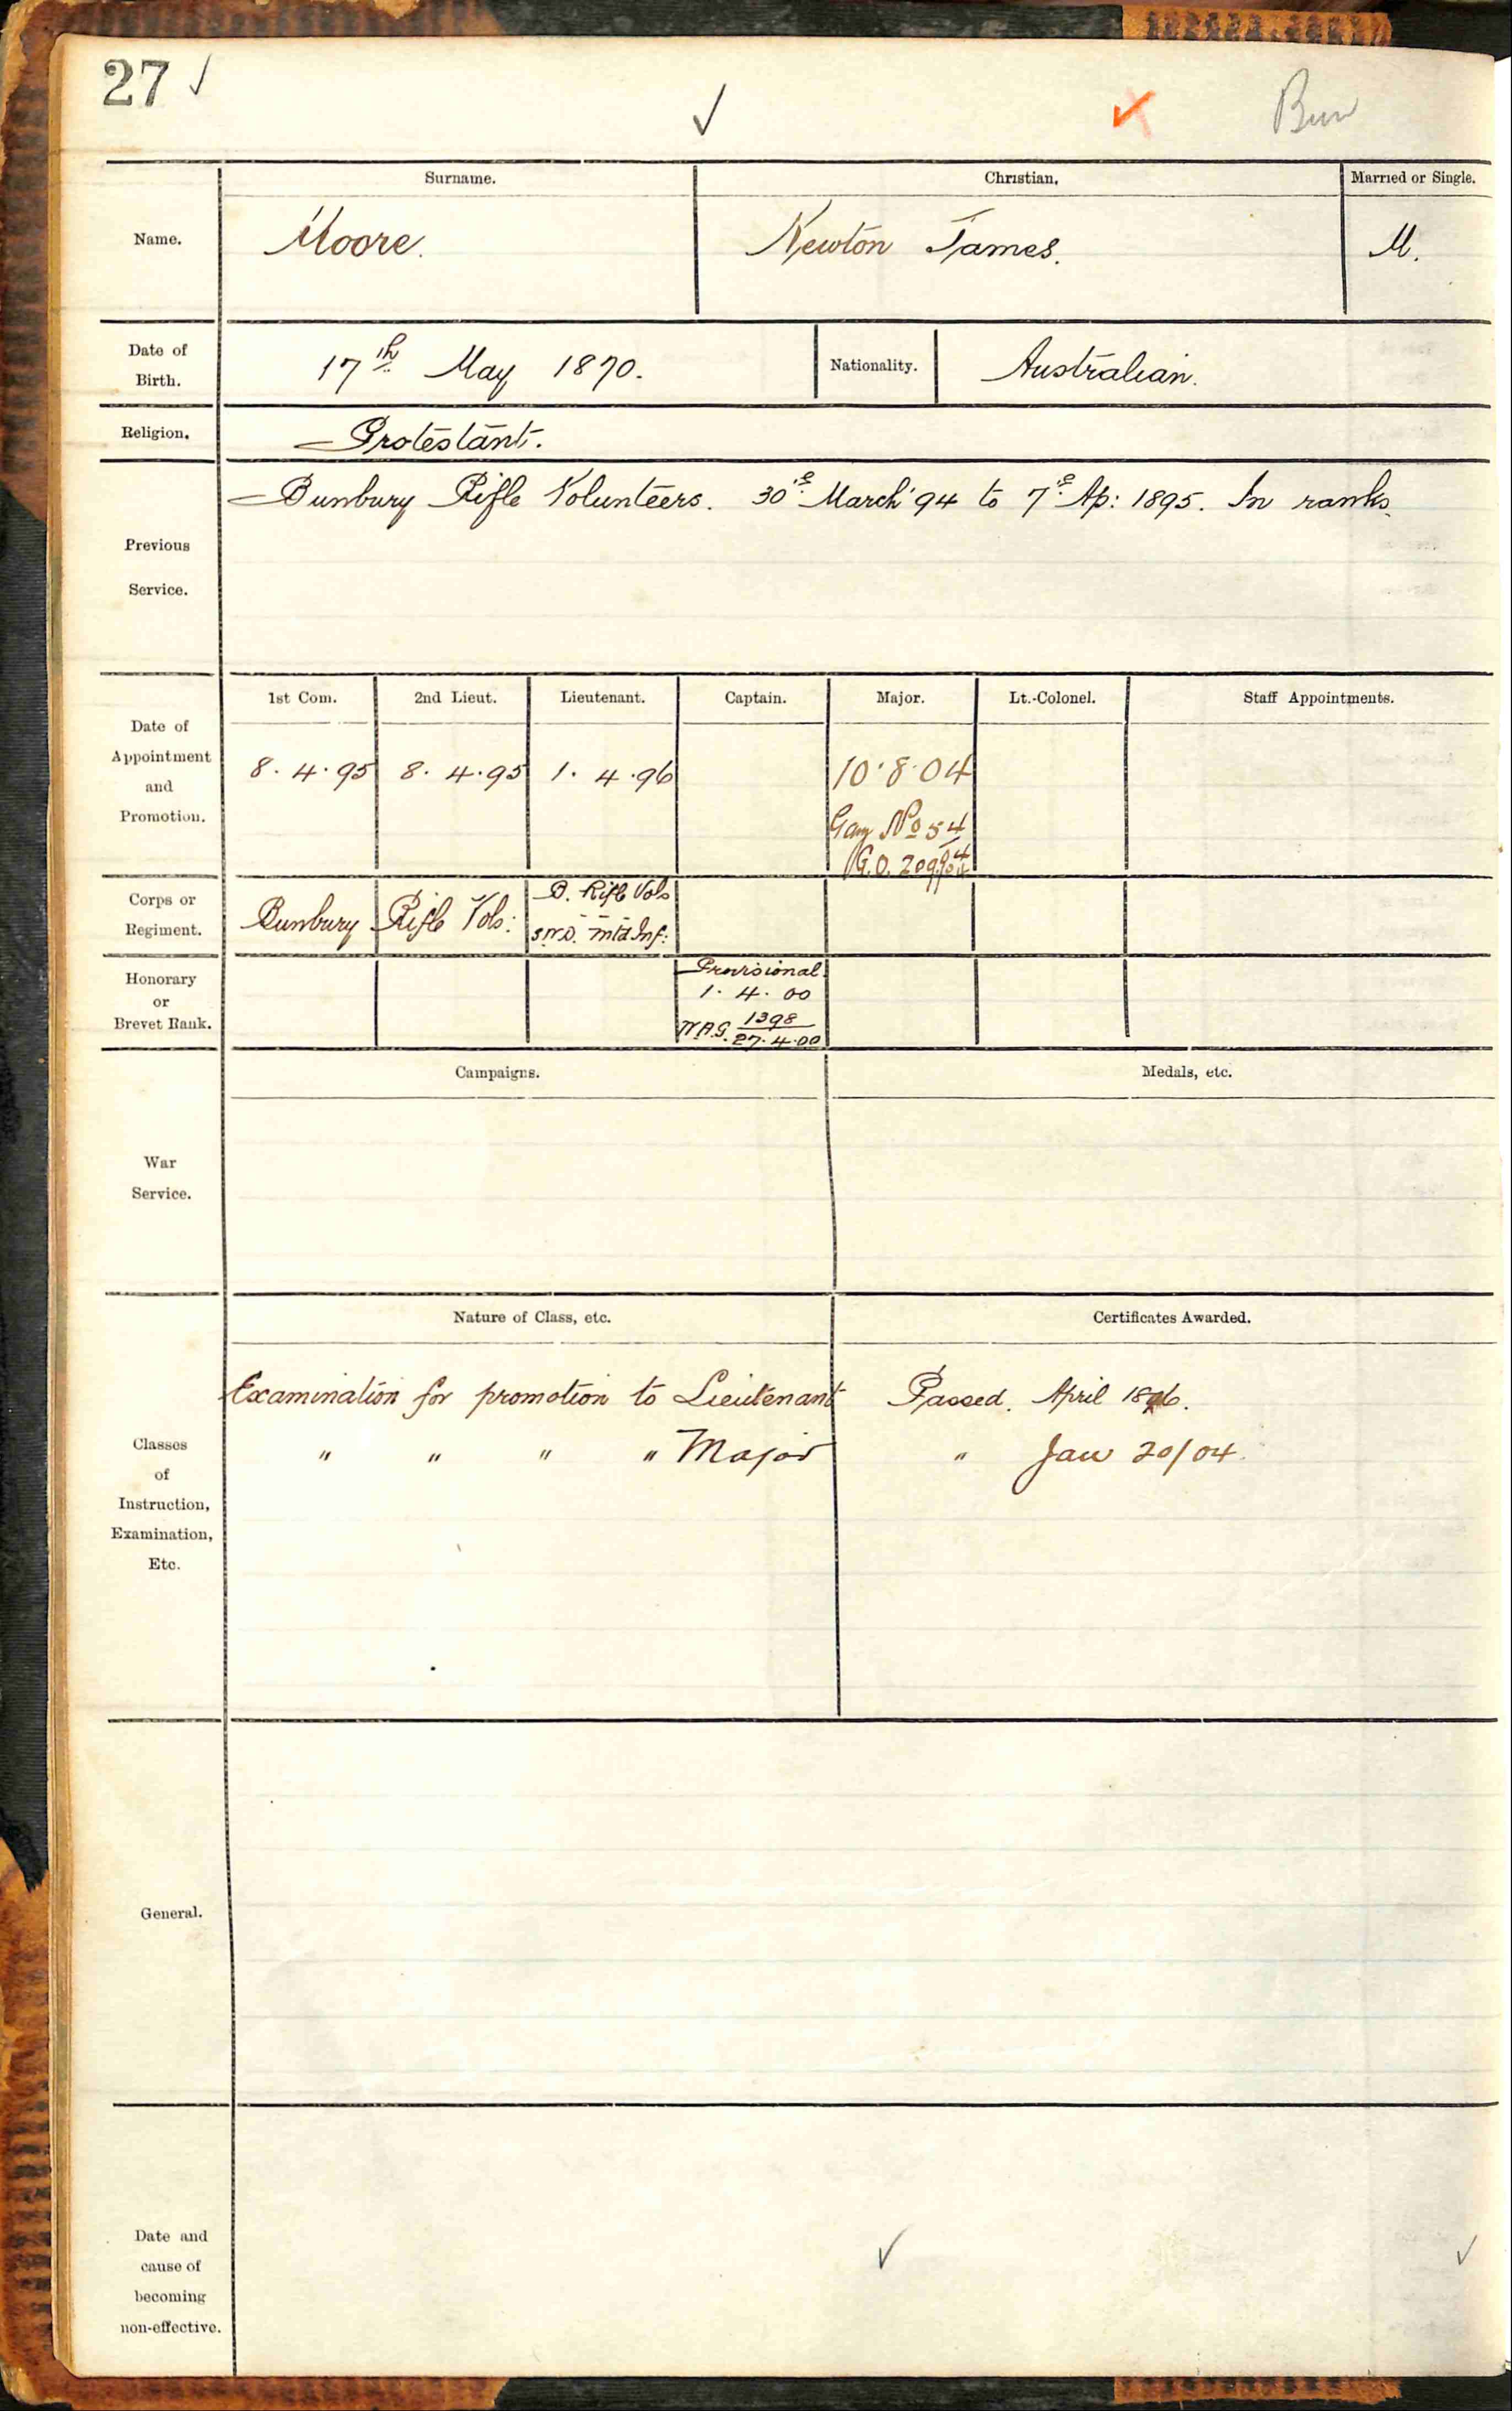 27
Bun
Surname. Christian. Married or Single.
Name. Moore. Newton James. M.
Date of
Birth. 17th May 1870. Nationality. Australian.
Religion. Protestant.
Bunbury Rifle Volunteers. 30th March '94 to 7th Ap: 1895. In ranks.
Previous
Service.
1st Com. 2nd Lieut. Lieutenant. Captain. Major. Lt.-Colonel. Staff Appointments.
Date of
Appointment
and
Promotion.
8.4.95 8.4.95 1.4.96 10.8.04
Gaz No 54
G.O. 209
Corps or
Regiment. Bunbury Rifle Vols: B. Rifle Vols
S.W.D. Mtd Inf:
Honorary
or
Brevet Rank.
Provisional
1.4.00
W.A.G. 1398
27.4.00
Campaigns. Medals, etc.
War
Service.
Nature of Class, etc. Certificates Awarded.
Examination for promotion to Lieutenant Passed. April 1896.
" " " " Major " Jan 20/04.
Classes
of
Instruction,
Examination,
Etc.
General.
Date and
cause of
becoming
non-effective.